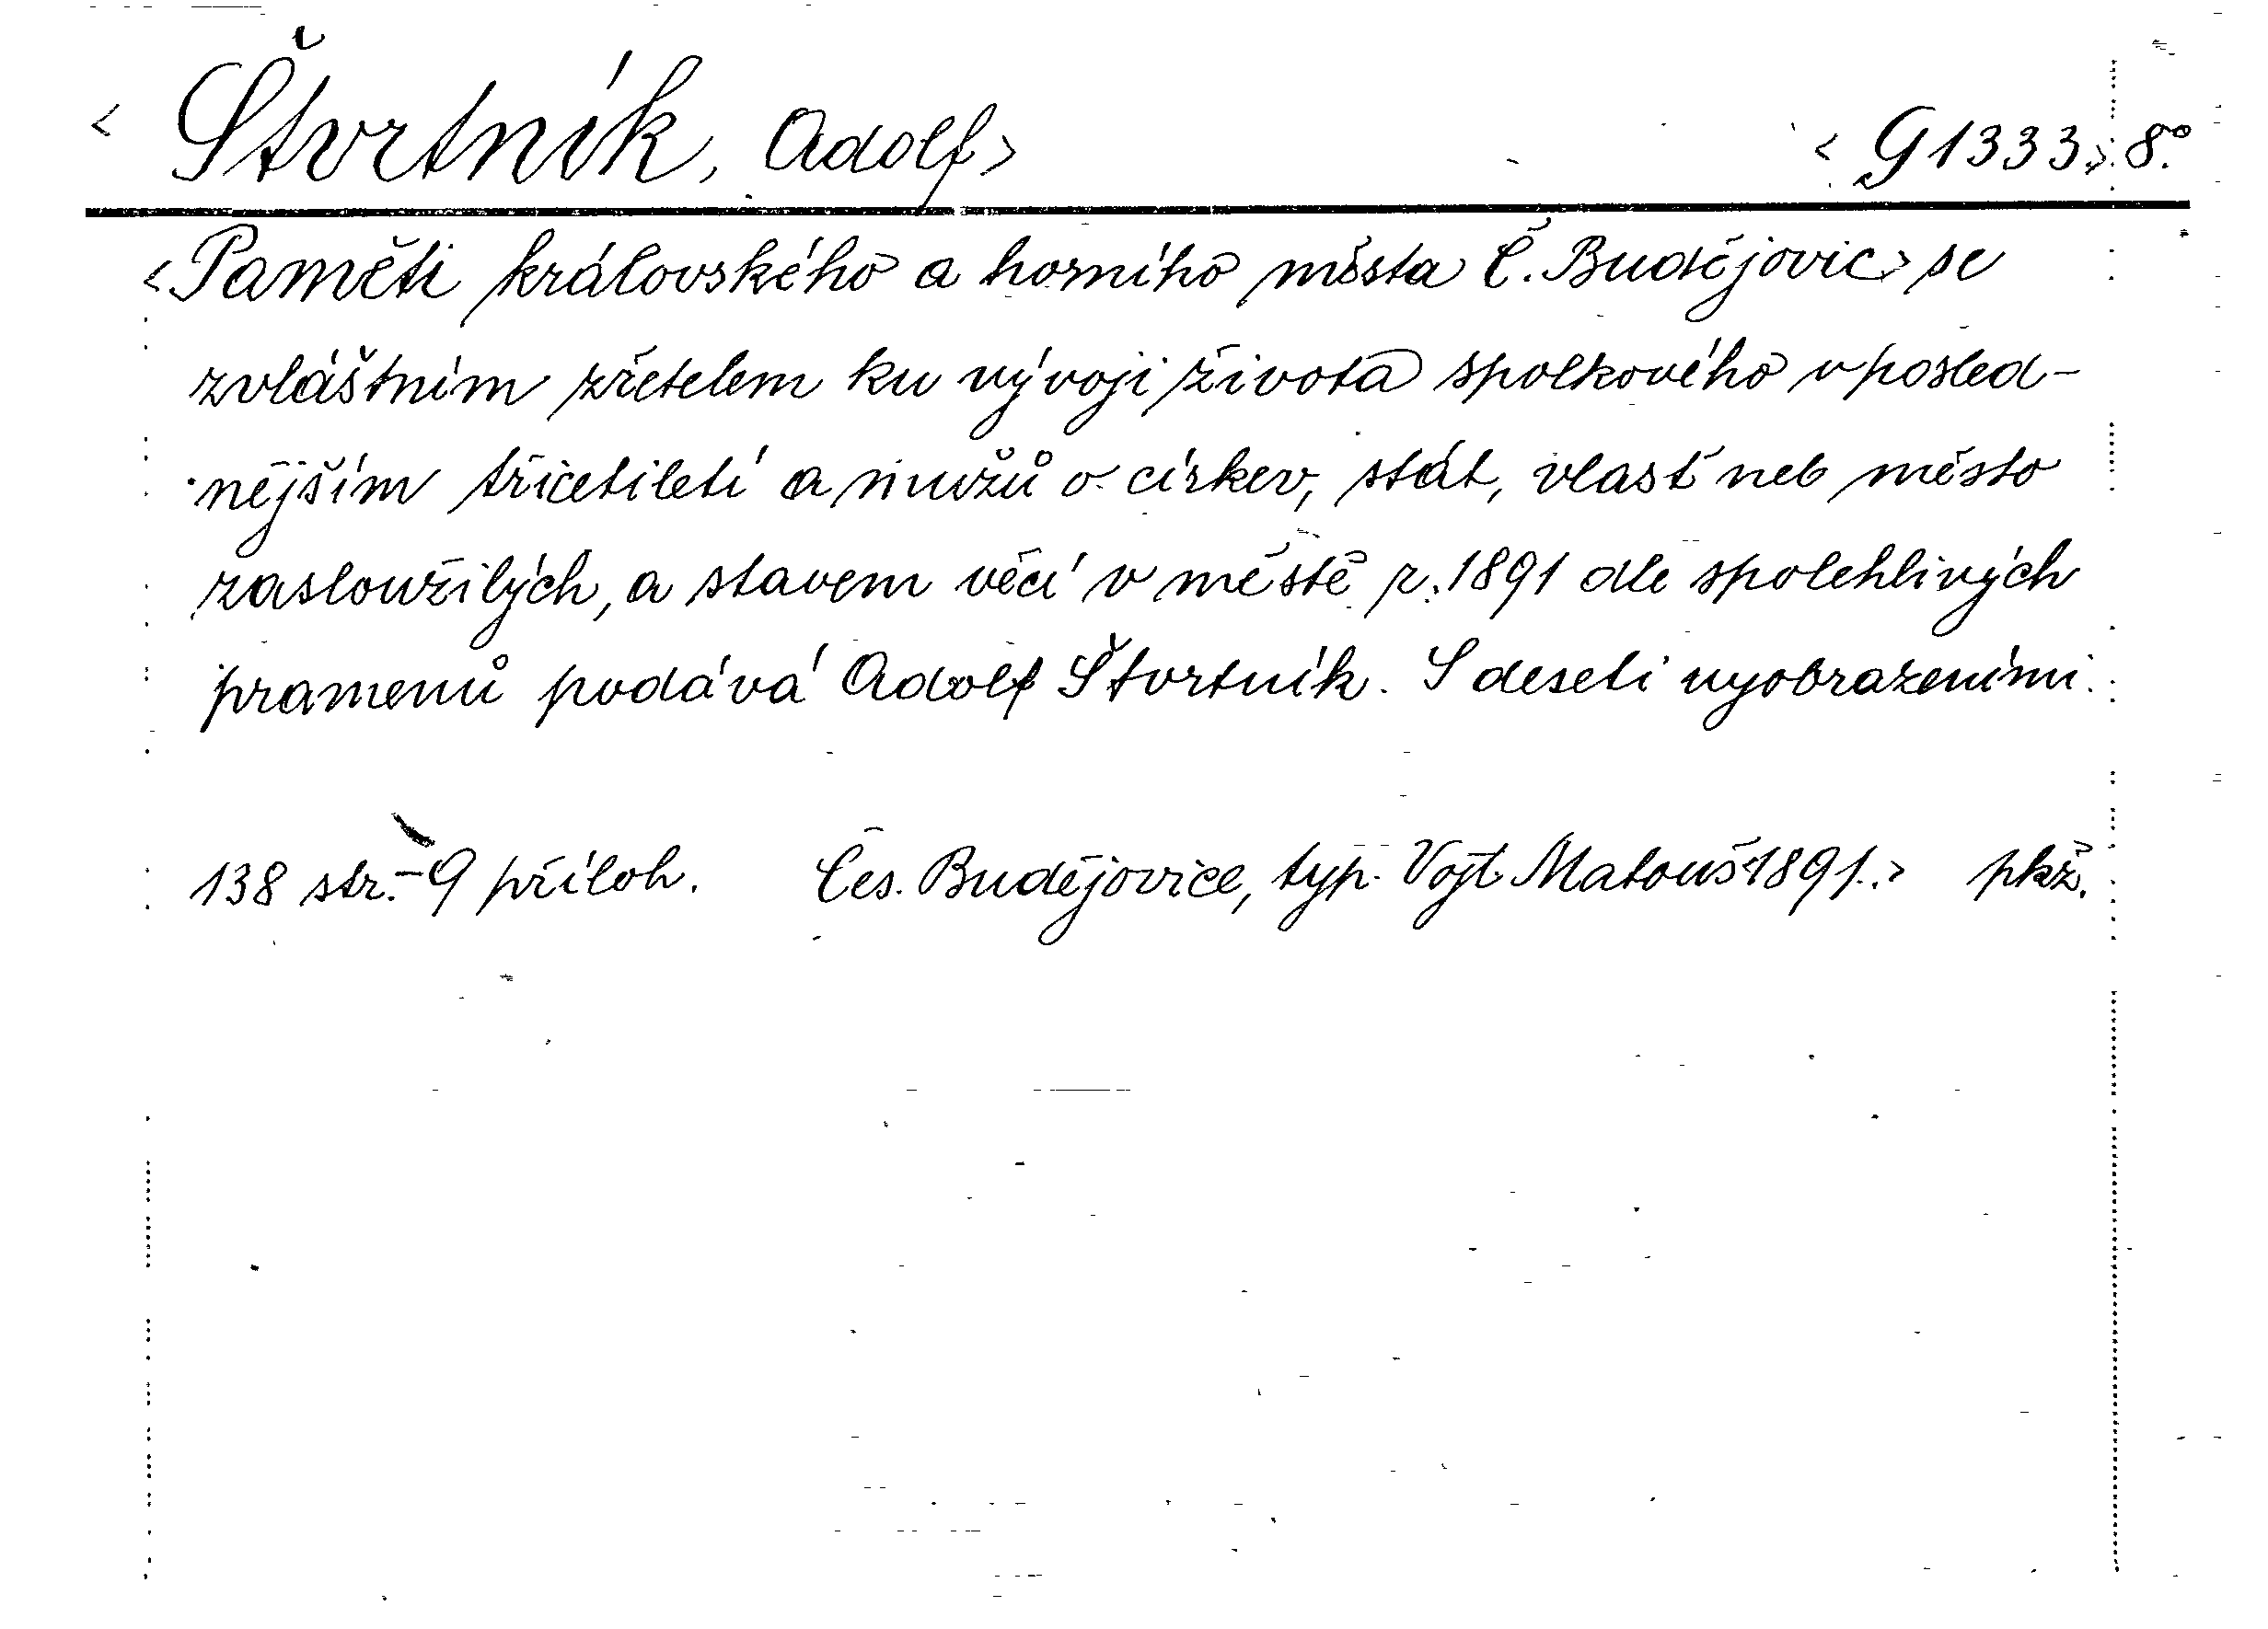 < Štvrtník, Adolf > < G 1333 > 8°
< Paměti královského a horního města Č. Budějovic > se
zvláštním zřetelem ku vývoji života spolkového v posled-
nějším třicetiletí a mužů o církev, stát, vlasť neb město
zasloužilých, a stavem věcí v městě r. 1891 dle spolehlivých
pramenů podává Adolf Štvrtník. S deseti vyobrazeními.
138 str. - 9 příloh. Čes. Budějovice, typ. Vojt. Matouš < 1891. > pkž.